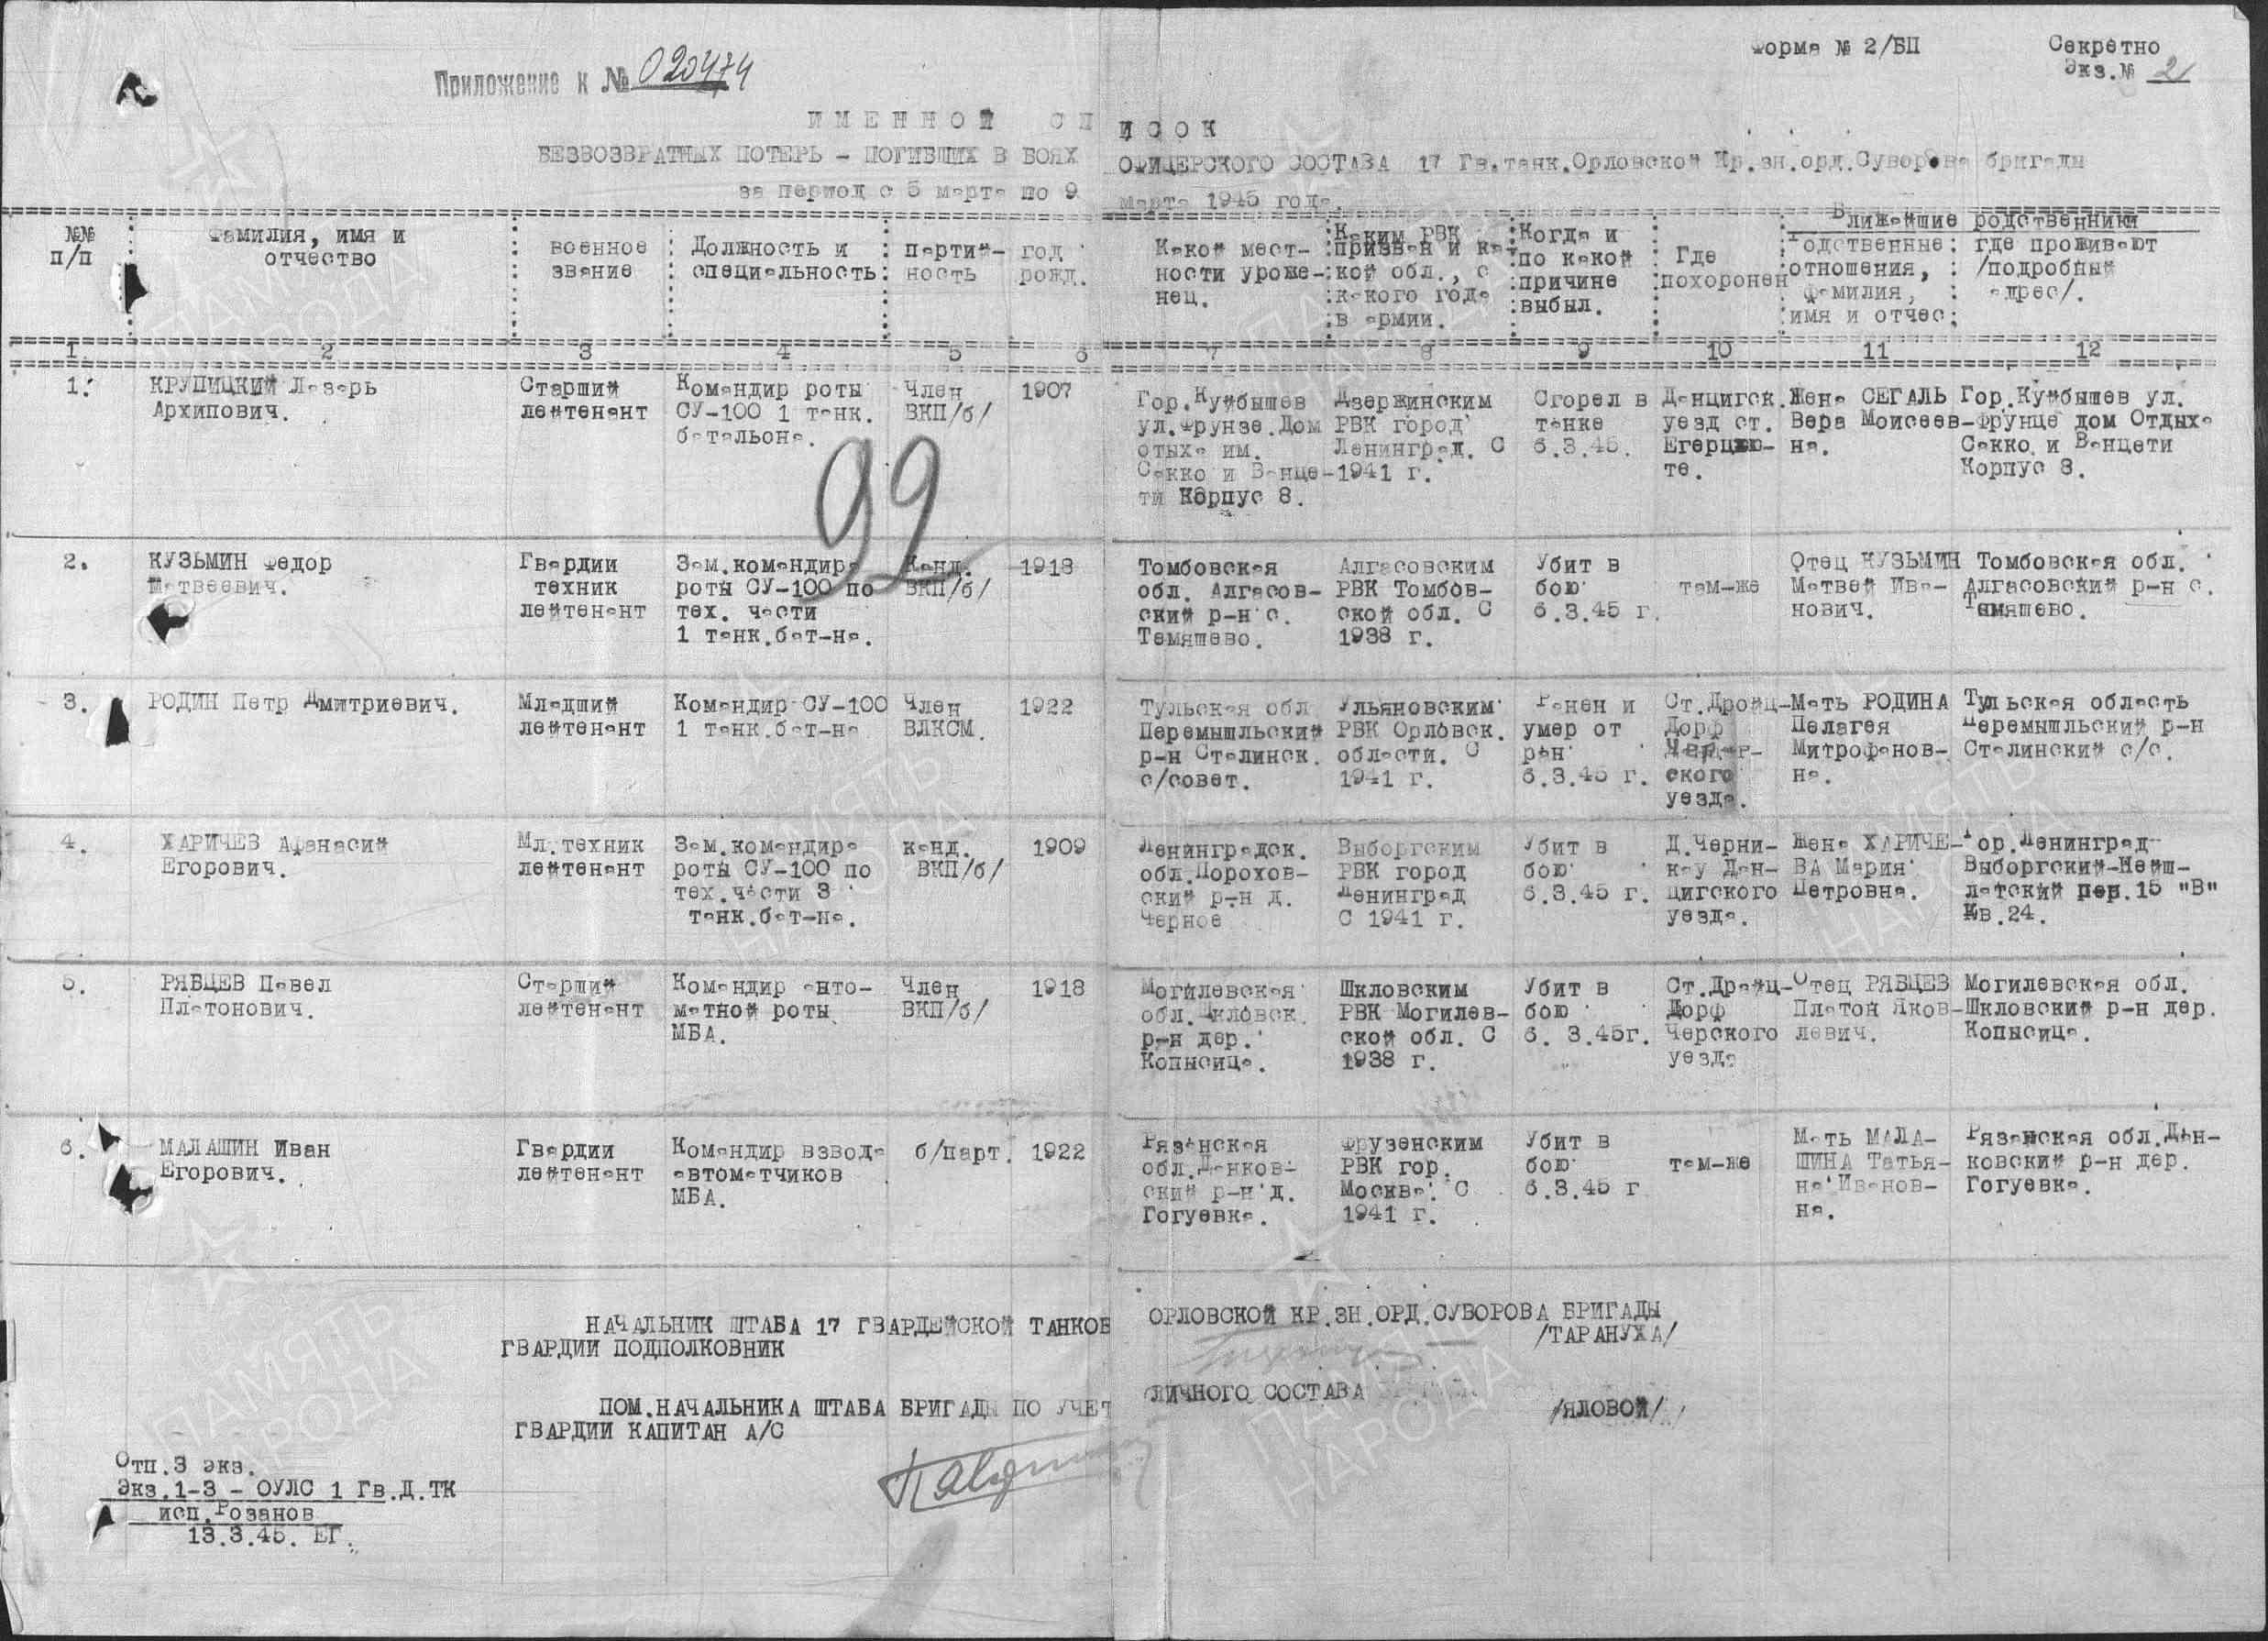 Форма № 2/БП
Секретно
Экз.№ 2
Приложение к № 020474
ИМЕННОЙ СПИСОК
БЕЗВОЗВРАТНЫХ ПОТЕРЬ – ПОГИБШИХ В БОЯХ ОФИЦЕРСКОГО СОСТАВА 17 Гв.танк.Орловской Кр.зн.орд.Суворова бригады
за период с 5 марта по 9 марта 1945 года.
№№
п/п
Фамилия, имя и
отчество
военное
звание
Должность и
специальность
партий-
ность
год
рожд.
Какой мест-
ности уроже-
нец.
Каким РВК
призван и ка-
кой обл., с
какого года
в армии.
Когда и
по какой
причине
выбыл.
Где
похоронен
Ближайшие родственники
Родственные
отношения,
фамилия,
имя и отчес.
где проживают
/подробный
адрес/.
1. 2 3 4 5 6 7 8 9 10 11 12
1.
КРУПИЦКИЙ Лазарь
Архипович.
Старший
лейтенант
Командир роты
СУ-100 1 танк.
батальона.
Член
ВКП/б/
1907
Гор.Куйбышев
ул.Фрунзе.Дом
отыха им.
Сакко и Ванце-
ти Корпус 8.
Дзержинским
РВК город
Ленинград. С
1941 г.
Сгорел в
танке
6.3.45.
Данцигск.
уезд ст.
Егерцхю-
те.
Жена СЕГАЛЬ
Вера Моисеев-
на.
Гор.Куйбышев ул.
Фрунце дом Отдыха
Сакко и Ванцети
Корпус 8.
92
2.
КУЗЬМИН Федор
Матвеевич.
Гвардии
техник
лейтенант
Зам.командира
роты СУ-100 по
тех. части
1 танк.бат-на.
Канд.
ВКП/б/
1918
Томбовская
обл. Алгасов-
ский р-н с.
Темяшево.
Алгасовским
РВК Томбов-
ской обл. С
1938 г.
Убит в
бою
6.3.45 г.
там-же
Отец КУЗЬМИН
Матвей Ива-
нович.
Томбовская обл.
Алгасовский р-н с.
Темяшево.
3.
РОДИН Петр Дмитриевич.
Младший
лейтенант
Командир СУ-100
1 танк.бат-на
Член
ВЛКСМ.
1922
Тульская обл
Перемышльский
р-н Сталинск.
с/совет.
Ульяновским
РВК Орловск.
области. С
1941 г.
Ранен и
умер от
ран
6.3.45 г.
Ст.Драйц-
Дорф
ского
уезда.
Мать РОДИНА
Пелагея
Митрофанов-
на.
Тульская область
Перемышльский р-н
Сталинский с/с.
4.
ХАРИЧЕВ Афанасий
Егорович.
Мл.техник
лейтенант
Зам.командира
роты СУ-100 по
тех.части 3
танк.бат-на.
канд.
ВКП/б/
1909
Ленинградск.
обл.Порохов-
ский р-н д.
Черное
Выборгским
РВК город
Ленинград
С 1941 г.
Убит в
бою
6.3.45 г.
Д.Черни-
кау Дан-
цигского
уезда.
Жена ХАРИЧЕ-
ВА Мария
Петровна.
Гор.Ленинград
Выборгский-Нейш-
латский пер.15 "В"
Кв.24.
5.
РЯБЦЕВ Павел
Платонович.
Старший
лейтенант
Командир авто-
матной роты
МБА.
Член
ВКП/б/
1918
Могилевская
обл.Шкловск.
р-н дер.
Копысица.
Шкловским
РВК Могилев-
ской обл. С
1938 г.
Убит в
бою
6. 3.45г.
Ст.Драйц-
Дорф
Черского
уезда
Отец РЯБЦЕВ
Платон Яков-
левич.
Могилевская обл.
Шкловский р-н дер.
Копысица.
6.
МАЛАШИН Иван
Егорович.
Гвардии
лейтенант
Командир взвода
автоматчиков
МБА.
б/парт.
1922
Рязанская
обл.Данков-
ский р-н д.
Гогуевка.
Фрузенским
РВК гор.
Москва. С
1941 г.
Убит в
бою
6.3.45 г
там-же
Мать МАЛА-
ШИНА Татья-
на Иванов-
на.
Рязанская обл.Дан-
ковский р-н дер.
Гогуевка.
НАЧАЛЬНИК ШТАБА 17 ГВАРДЕЙСКОЙ ТАНКОВ ОРЛОВСКОЙ КР.ЗН.ОРД.СУВОРОВА БРИГАДЫ
ГВАРДИИ ПОДПОЛКОВНИК /ТАРАНУХА/
ПОМ.НАЧАЛЬНИКА ШТАБА БРИГАДЫ ПО УЧЕТ ЛИЧНОГО СОСТАВА
ГВАРДИИ КАПИТАН А/С /ЯЛОВОЙ/
Отп.3 экз.
Экз.1-3 – ОУЛС 1 Гв.Д.ТК
исп.Розанов
13.3.45. ЕГ.
ПАМЯТЬ
НАРОДА